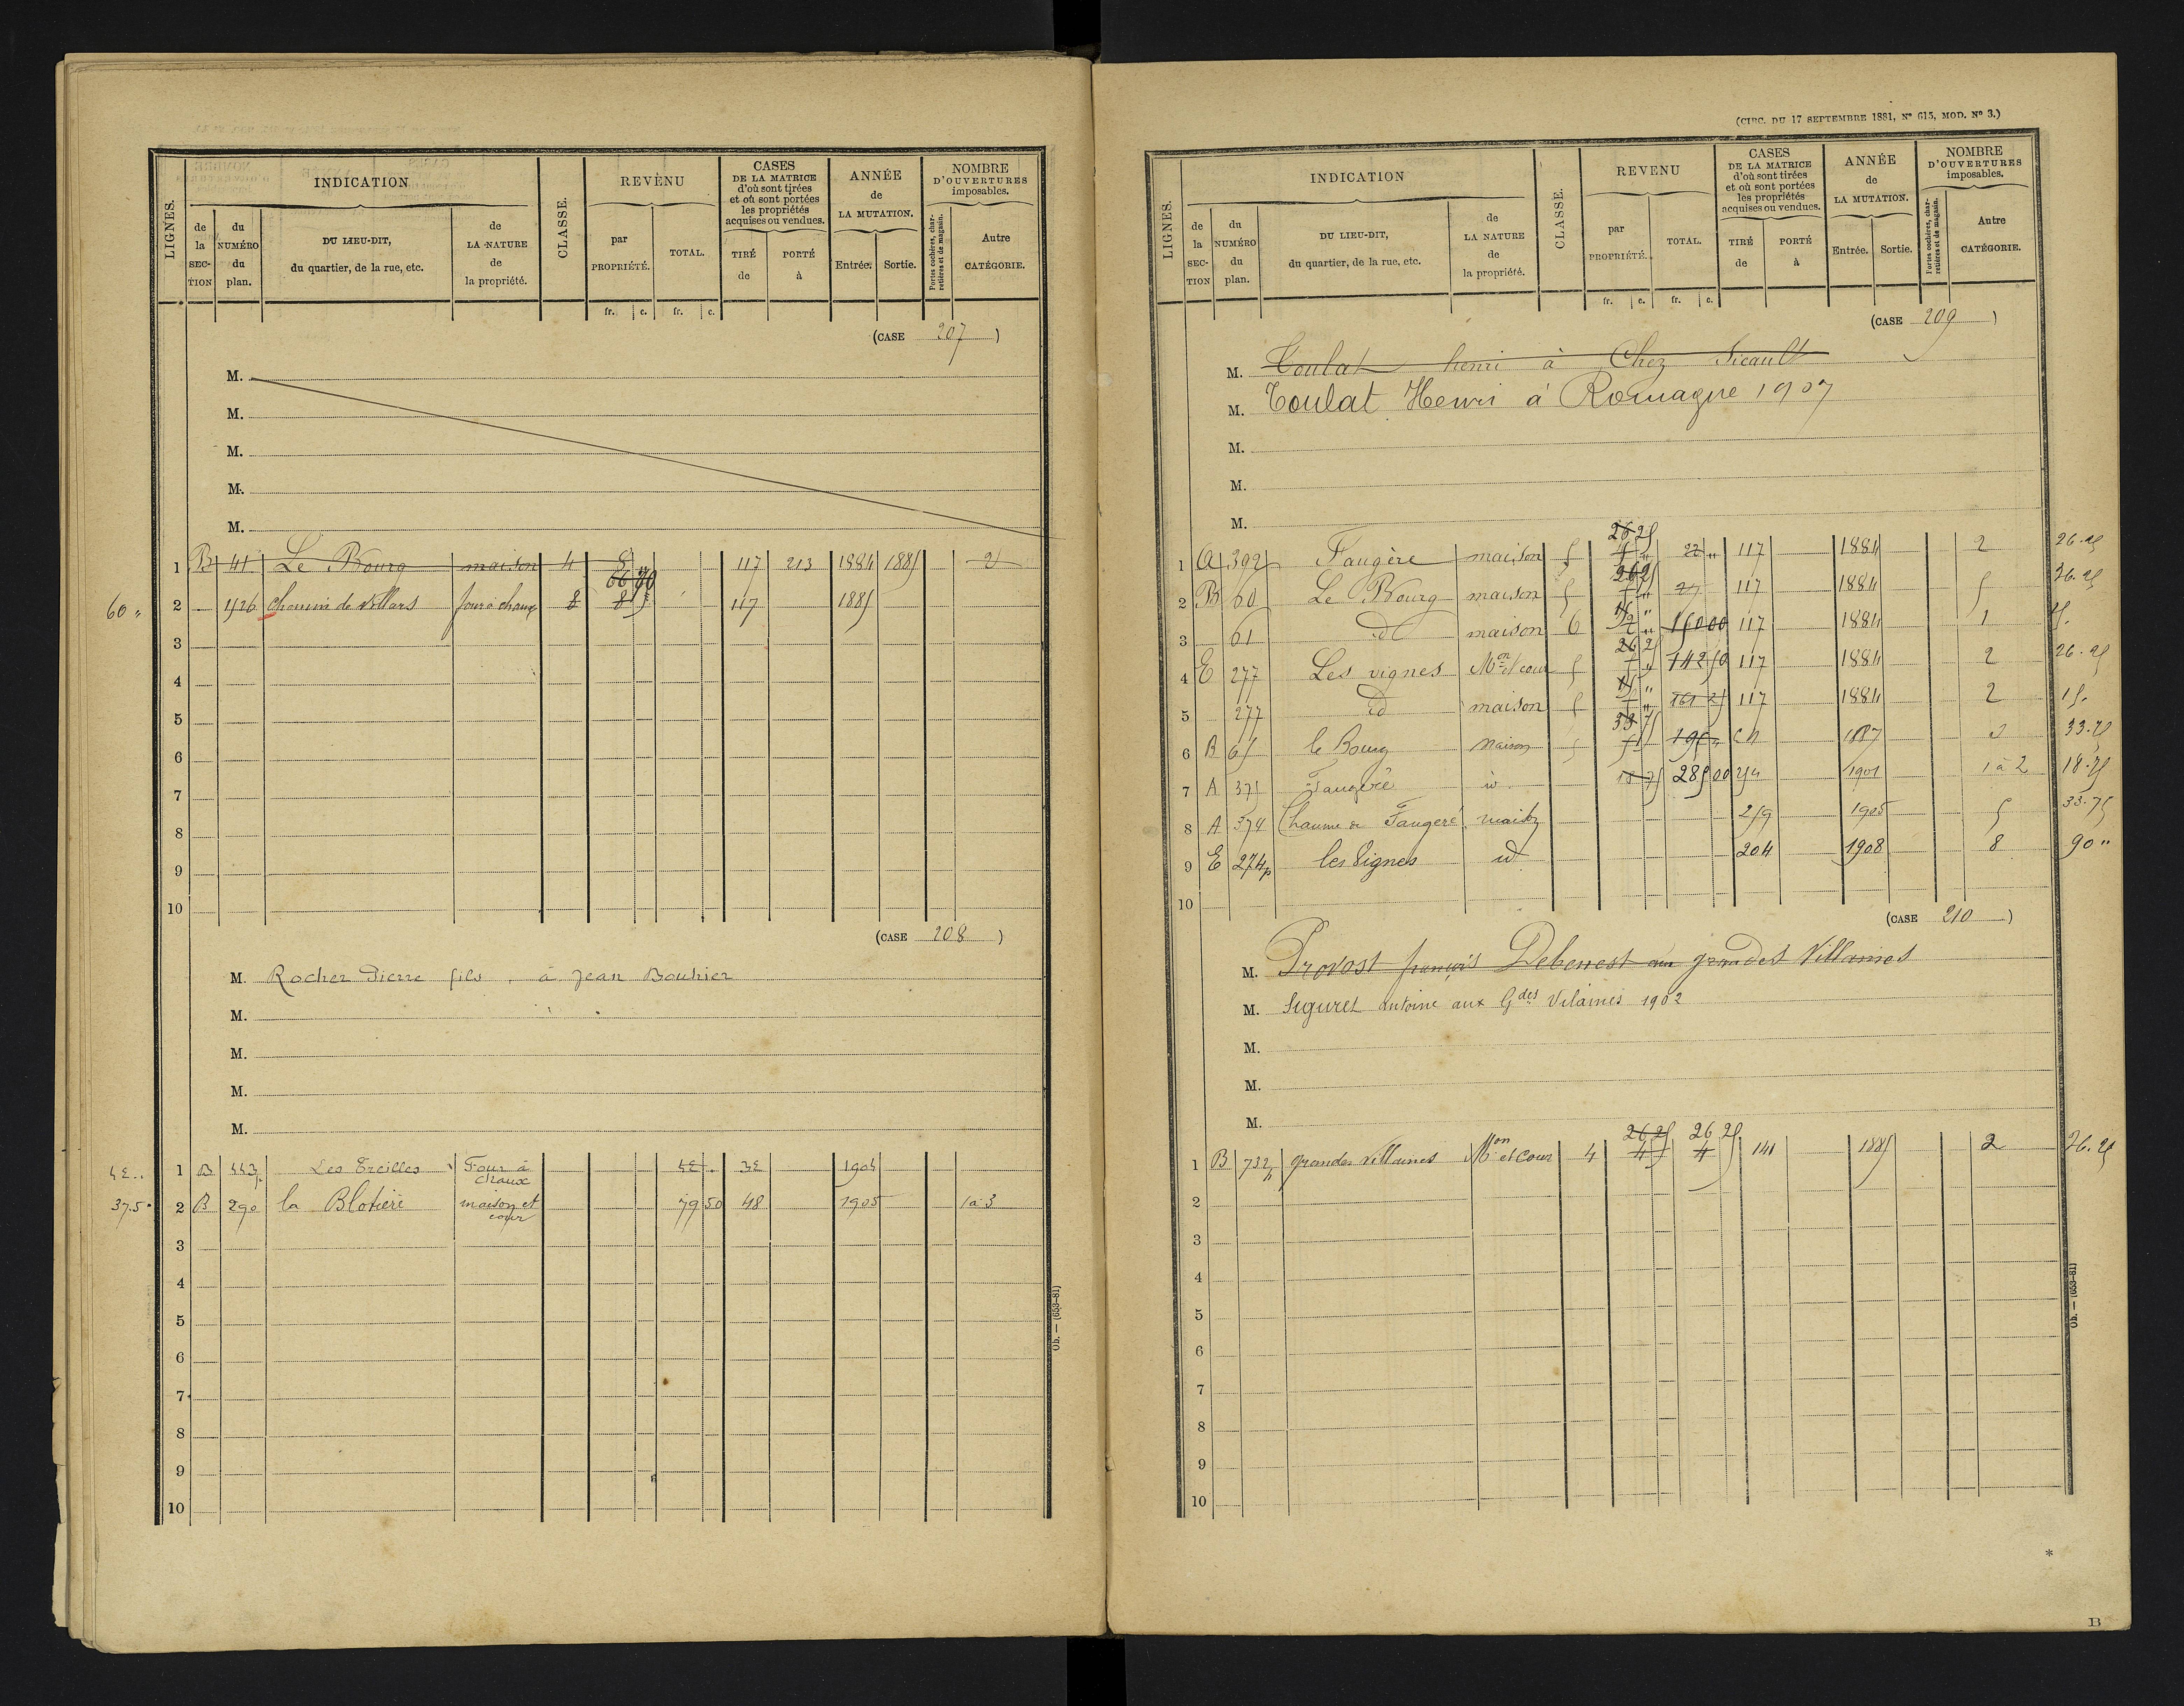 LIGNES.
INDICATION
de la SECTION
du NUMÉRO du plan.
DU LIEU-DIT, du quartier, de la rue, etc.
de LA NATURE de la propriété.
CLASSE.
REVENU
par PROPRIÉTÉ.
TOTAL.
CASES DE LA MATRICE d'où sont tirées et où sont portées les propriétés acquises ou vendues.
TIRÉ de
PORTÉ à
ANNÉE de LA MUTATION.
Entrée.
Sortie.
NOMBRE D'OUVERTURES imposables.
Portes cochères, charretières et de magasin.
Autre CATÉGORIE.
fr. c. fr. c.
(CASE 207)
M.
M.
M.
M.
M.
1 B 41 Le Bourg maison 4 117 213 1884 1885 2
60 " 2 426 chemin de Villars four à chaux 8 117 1885
3
4
5
6
7
8
9
10
(CASE 208)
M. Rocher Pierre fils à Jean Bouhier
M.
M.
M.
M.
42.. 1 B 443p Les Treilles Four à chaux 42 . 32 1904
37.5° 2 B 290 la Blotière maison et cour 79 50 48 1905 1 à 3
3
4
5
6
7
8
9
10
Ob. — (653-81)
(CIRC. DU 17 SEPTEMBRE 1881, N° 615, MOD. N° 3.)
LIGNES.
INDICATION
de la SECTION
du NUMÉRO du plan.
DU LIEU-DIT, du quartier, de la rue, etc.
de LA NATURE de la propriété.
CLASSE.
REVENU
par PROPRIÉTÉ.
TOTAL.
CASES DE LA MATRICE d'où sont tirées et où sont portées les propriétés acquises ou vendues.
TIRÉ de
PORTÉ à
ANNÉE de LA MUTATION.
Entrée.
Sortie.
NOMBRE D'OUVERTURES imposables.
Portes cochères, charretières et de magasin.
Autre CATÉGORIE.
fr. c. fr. c.
(CASE 209)
M. Toulat henri à Chez Sicault
M. Toulat Henri à Romagne 1907
M.
M.
M.
1 A 392 Faugère maison 5 26 25 22 " 117 1884 2 26.25
2 B 60 Le Bourg maison 5 26 25 27 117 1884 5 26.25
3 61 id maison 6 15 " 150 00 117 1884 1 15.
4 E 277 Les vignes Mon et cour 5 26 25 142 50 117 1884 2 26.25
5 277 id maison 5 15 " 161 25 117 1884 2 15.
6 B 65 le Bourg maison 5 33 75 195 " CN 1887 33.75
7 A 375 Faugère id 18 75 285 00 1901 1 à 2 18.75
8 A 374 Chaume de Faugère maison 259 1905 5 33.75
9 E 274p les Vignes id 204 1908 8 90 "
10
(CASE 210)
M. Provost françois Debenest aux grandes Villaines
M. Siguret Antoine aux Gdes Vilaines 1902
M.
M.
M.
1 B 732p grandes villaines Mon et cour 4 26 25 26 25 141 1885 2 26.25
2
3
4
5
6
7
8
9
10
Ob. — (653-81)
*
B